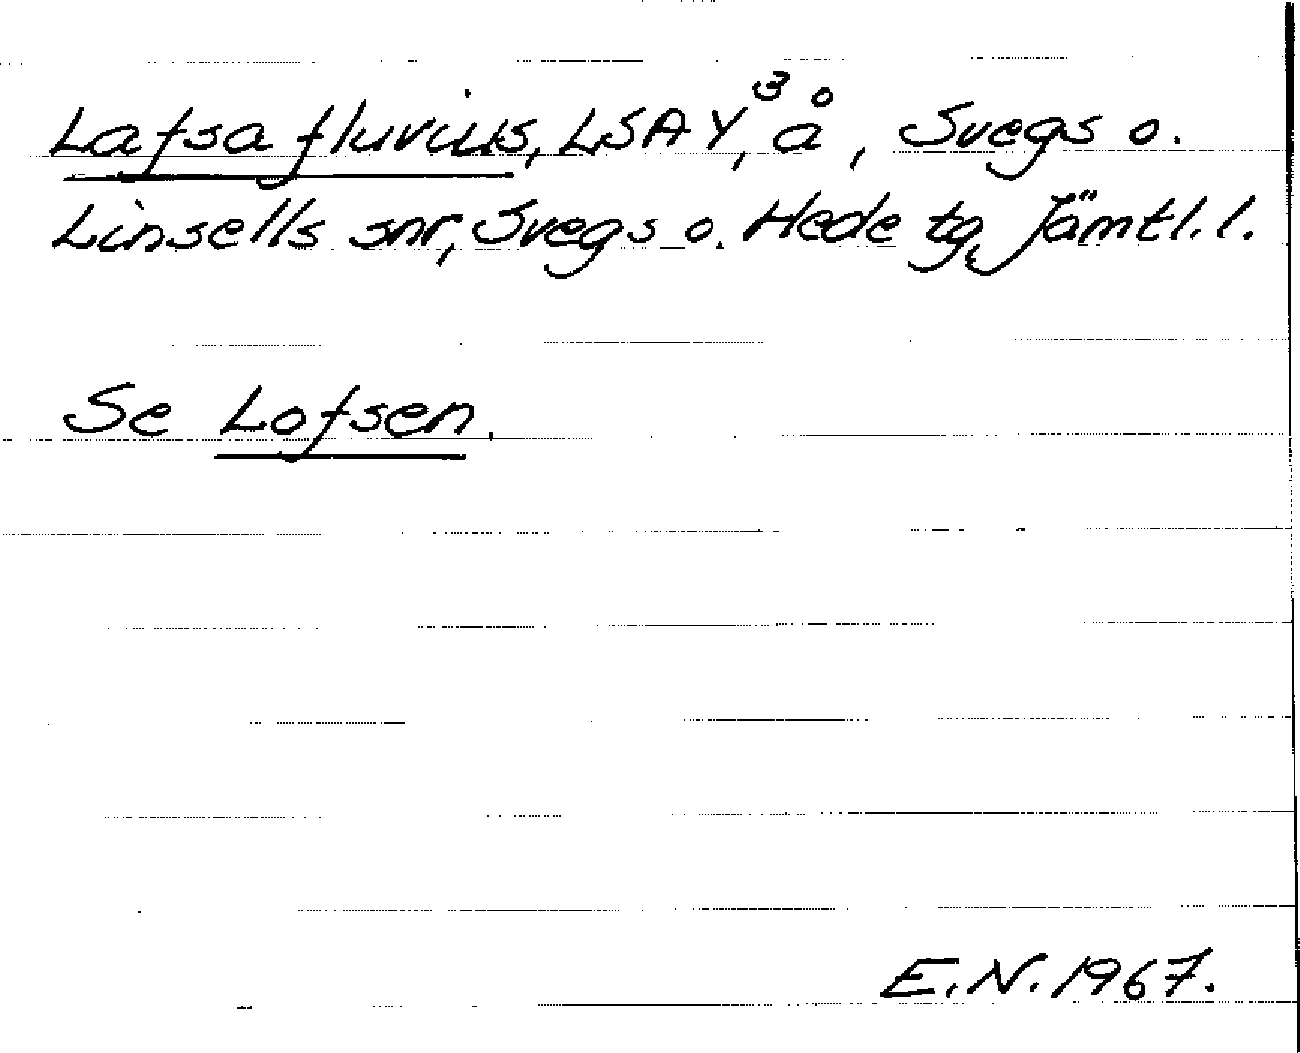 Lafsa fluvius, LSA Y³, å, Svegs o.
Linsells snr, Svegs o. Hede tg, Jämtl. l.
Se Lofsen.
E.N. 1967.